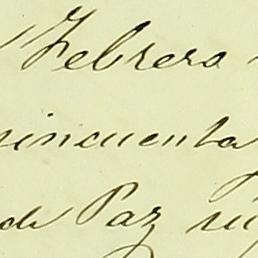 Febrero
cincuenta
de Paz